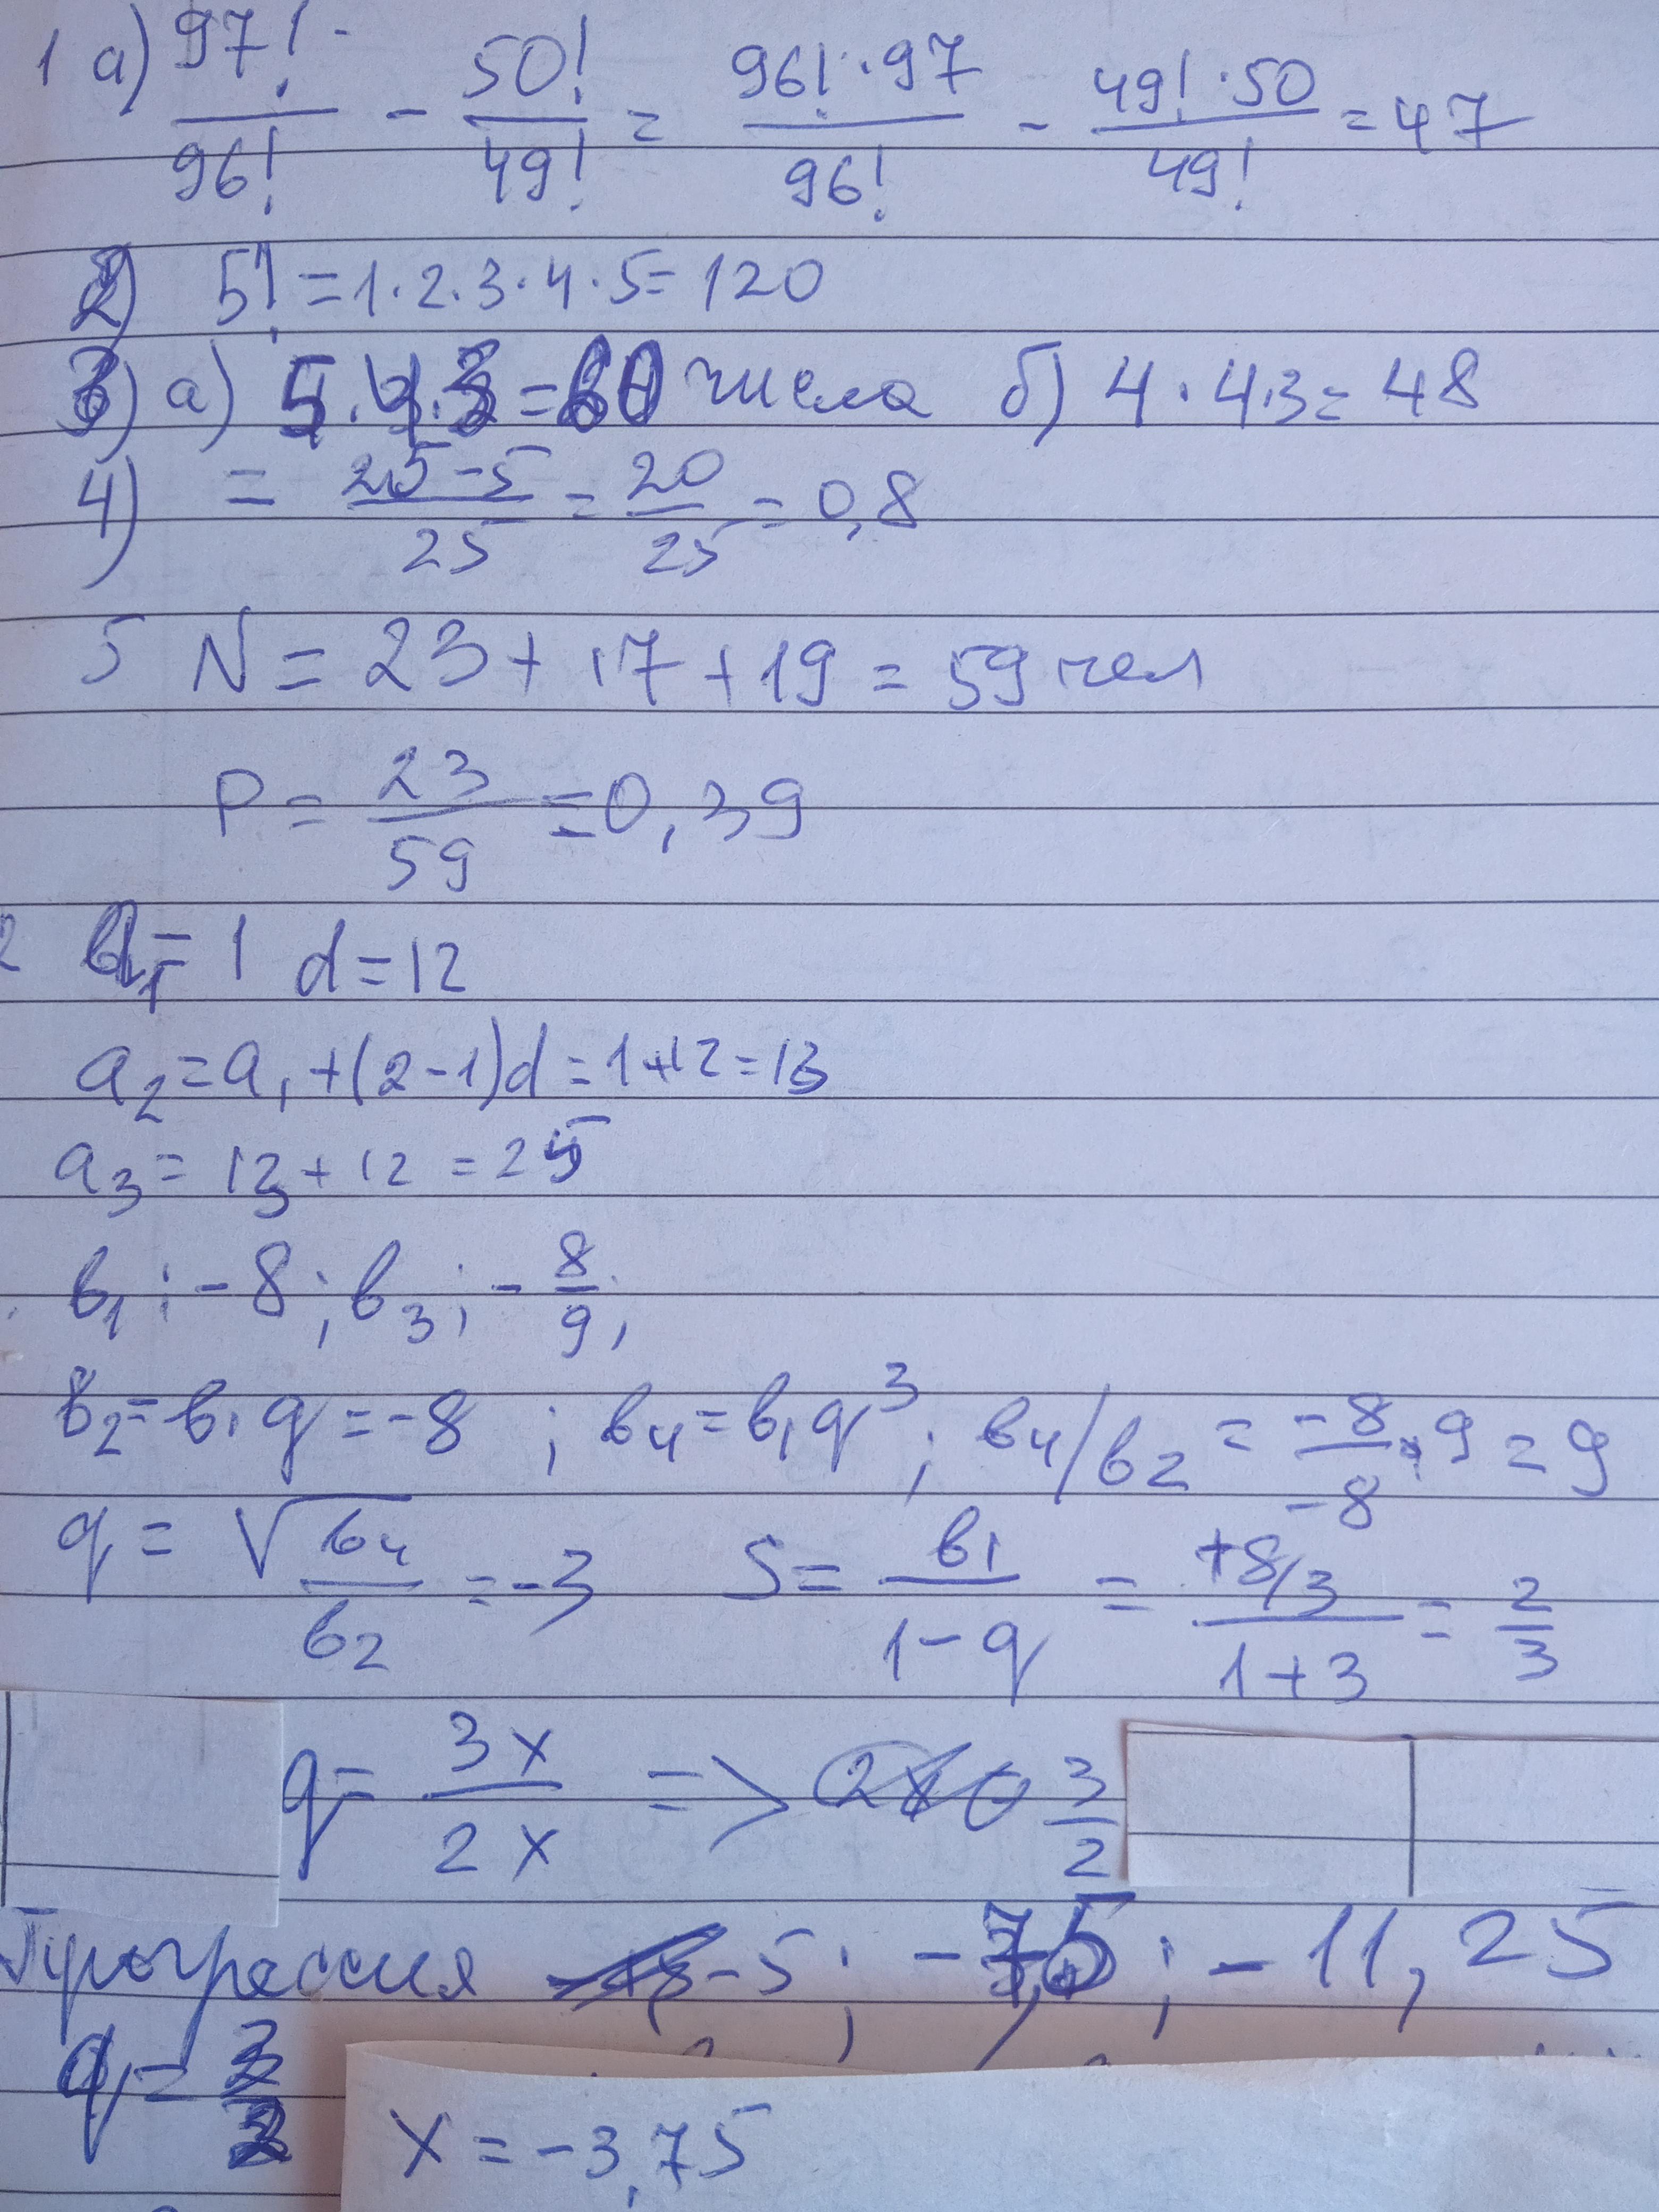 1 а) 97!/96! - 50!/49! = 96!·97/96! - 49!·50/49! = 47
2) 5! = 1·2·3·4·5 = 120
3) а) 5·4·3 = 60 числа б) 4·4·3 = 48
4) = 25-5/25 = 20/25 = 0,8
5 N = 23 + 17 + 19 = 59 чел
P = 23/59 = 0,39
2 a₁ = 1 d = 12
a₂ = a₁ + (2-1)d = 1+12 = 13
a₃ = 13 + 12 = 25
в₁; -8; в₃; -8/9;
в₂ = в₁q = -8 ; в₄ = в₁q³ ; в₄/в₂ = -8/-8·9 = 9
q = √в₄/в₂ = -3 S = в₁/1-q = +8/3/1+3 = 2/3
q = 3x/2x => 3/2
Прогрессия -5; -7,5; -11,25
q =
x = -3,75